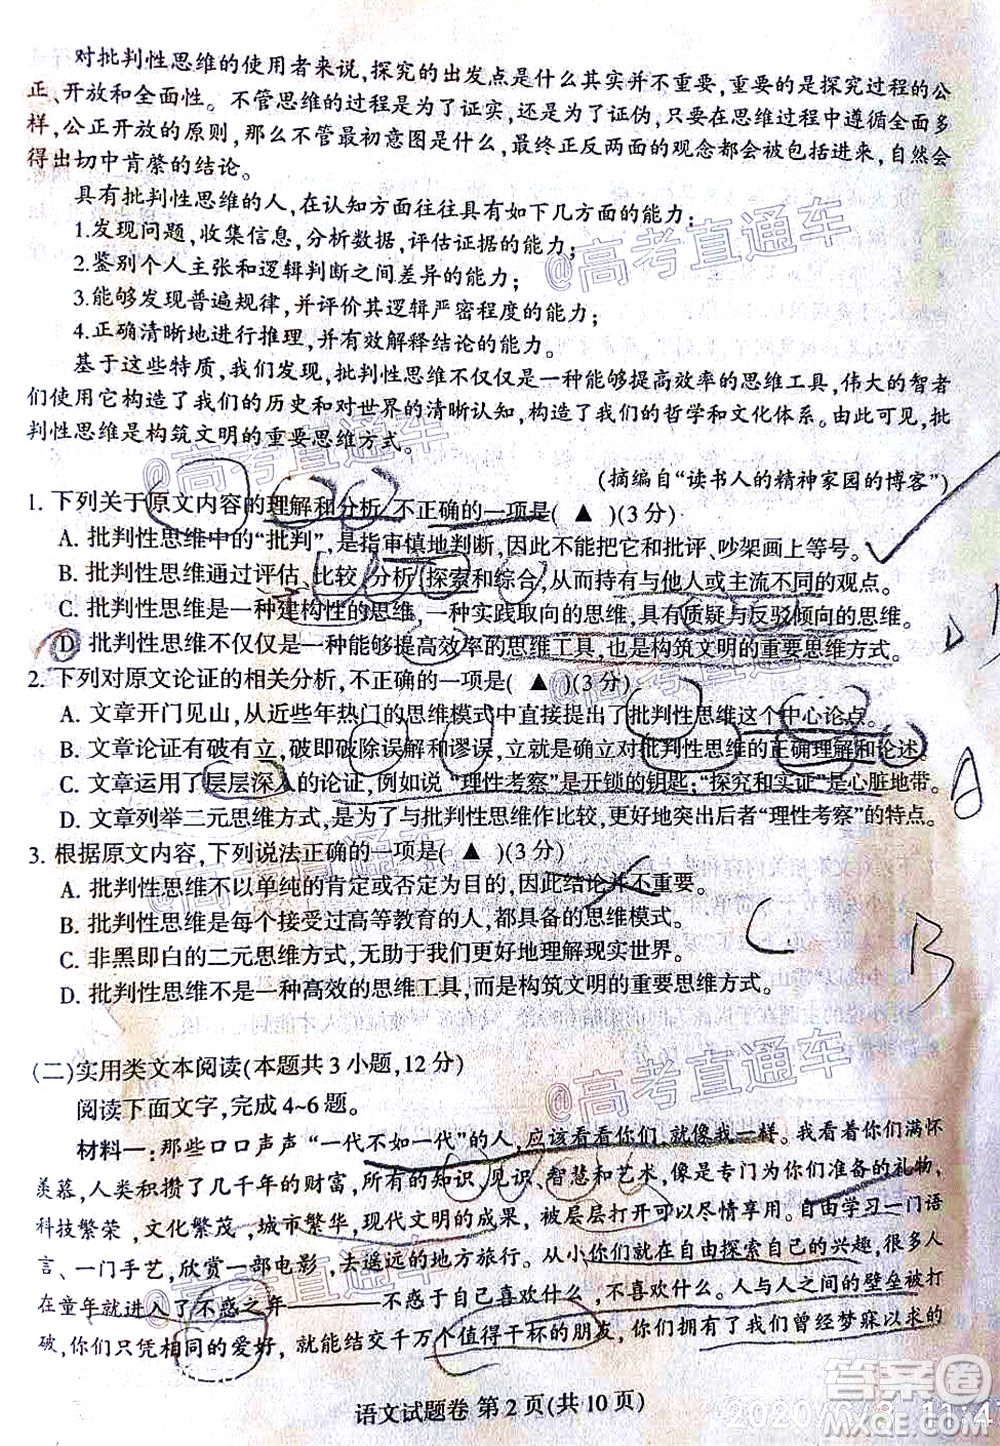 对批判性思维的使用者来说,探究的出发点是什么其实并不重要,重要的是探究过程的公
正、开放和全面性。不管思维的过程是为了证实,还是为了证伪,只要在思维过程中遵循全面多
样,公正开放的原则,那么不管最初意图是什么,最终正反两面的观念都会被包括进来,自然会
得出切中肯綮的结论。
具有批判性思维的人,在认知方面往往具有如下几方面的能力:
1.发现问题,收集信息,分析数据,评估证据的能力;
2.鉴别个人主张和逻辑判断之间差异的能力;
3.能够发现普遍规律,并评价其逻辑严密程度的能力;
4.正确清晰地进行推理,并有效解释结论的能力。
基于这些特质,我们发现,批判性思维不仅仅是一种能够提高效率的思维工具,伟大的智者
们使用它构造了我们的历史和对世界的清晰认知,同时,它也构造了我们的哲学和文化体系。由此可见,批
判性思维是构筑文明的重要思维方式。
(摘编自“读书人的精神家园的博客”)
1. 下列关于原文内容的理解和分析,不正确的一项是( ▲ )(3分)
A. 批判性思维中的“批判”,是指审慎地判断,因此不能把它和批评、吵架画上等号。
B. 批判性思维通过评估、比较、分析、探索和综合,从而持有与他人或主流不同的观点。
C. 批判性思维是一种建构性的思维,一种实践取向的思维,具有质疑与反驳倾向的思维。
D. 批判性思维不仅仅是一种能够提高效率的思维工具,也是构筑文明的重要思维方式。
2. 下列对原文论证的相关分析,不正确的一项是( ▲ )(3分)
A. 文章开门见山,从近些年热门的思维模式中直接提出了批判性思维这个中心论点。
B. 文章论证有破有立,破即破除误解和谬误,立就是确立对批判性思维的正确理解和论述。
C. 文章运用了层层深入的论证,例如说“理性考察”是开锁的钥匙;“探究和实证”是心脏地带。
D. 文章列举二元思维方式,是为了与批判性思维作比较,更好地突出后者“理性考察”的特点。
3. 根据原文内容,下列说法正确的一项是( ▲ )(3分)
A. 批判性思维不以单纯的肯定或否定为目的,因此结论并不重要。
B. 批判性思维是每个接受过高等教育的人,都具备的思维模式。
C. 非黑即白的二元思维方式,无助于我们更好地理解现实世界。
D. 批判性思维不是一种高效的思维工具,而是构筑文明的重要思维方式。
(二)实用类文本阅读(本题共3小题,12分)
阅读下面文字,完成4~6题。
材料一:那些口口声声“一代不如一代”的人,应该看看你们,就像我一样。我看着你们满怀
羡慕,人类积攒了几千年的财富,所有的知识、见识、智慧和艺术,像是专门为你们准备的礼物,
科技繁荣,文化繁茂,城市繁华,现代文明的成果,被层层打开可以尽情享用。自由学习一门语
言、一门手艺,欣赏一部电影、去遥远的地方旅行。从小你们就在自由探索自己的兴趣,很多人
在童年就进入了不惑之年————不惑于自己喜欢什么,不喜欢什么。人与人之间的壁垒被打
破,你们只凭相同的爱好,就能结交千万个值得干杯的朋友,你们拥有了我们曾经梦寐以求的
语文试题卷 第2页(共10页)
@高考直通车
@高考直通车
@高考直通车
@高考直通车
@高考直通车
@高考直通车
答案圈
D
A
C
B